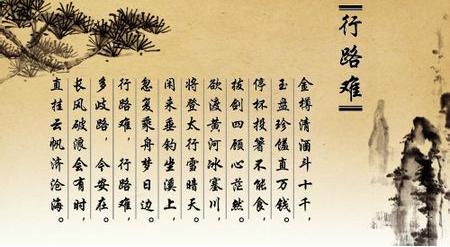 行路难
金樽清酒斗十千，
玉盘珍馐直万钱。
停杯投箸不能食，
拔剑四顾心茫然。
欲渡黄河冰塞川，
将登太行雪晴天。
闲来垂钓坐溪上，
忽复乘舟梦日边。
行路难，行路难，
多歧路，今安在。
长风破浪会有时，
直挂云帆济沧海。